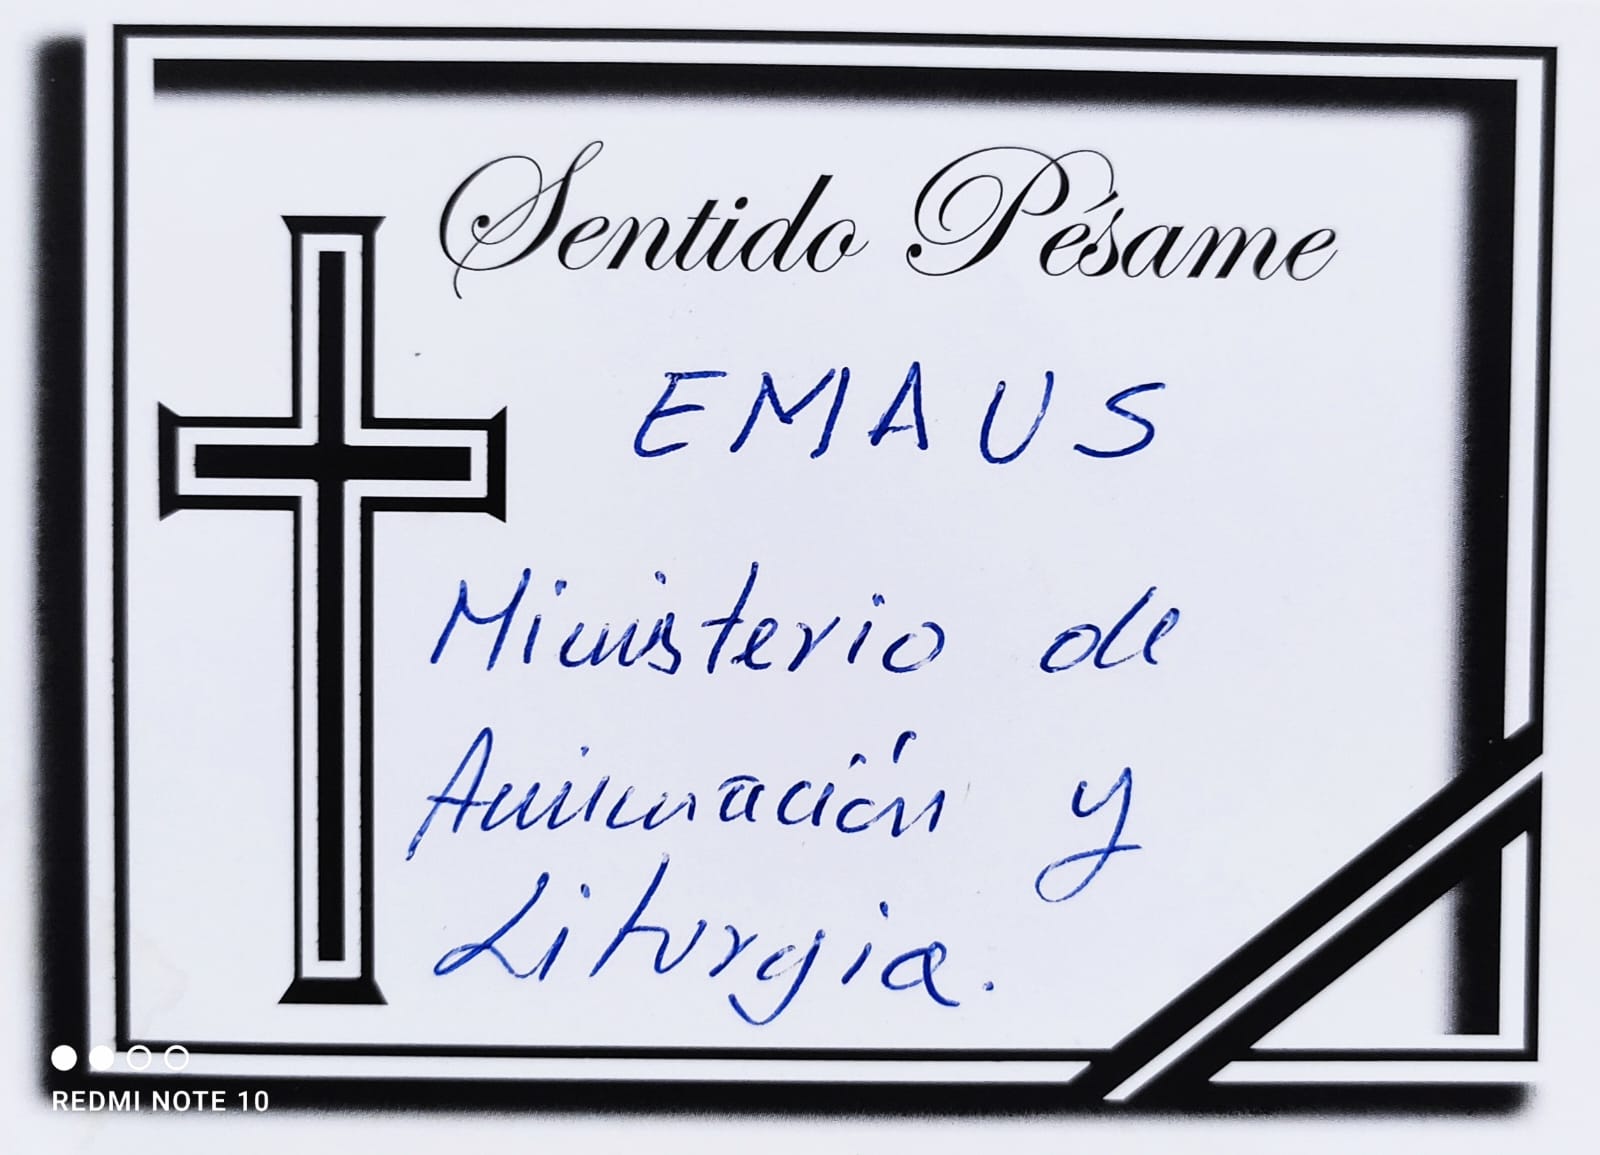 Sentido Pésame
EMAUS
Ministerio de
Animación y
Liturgia.
REDMI NOTE 10